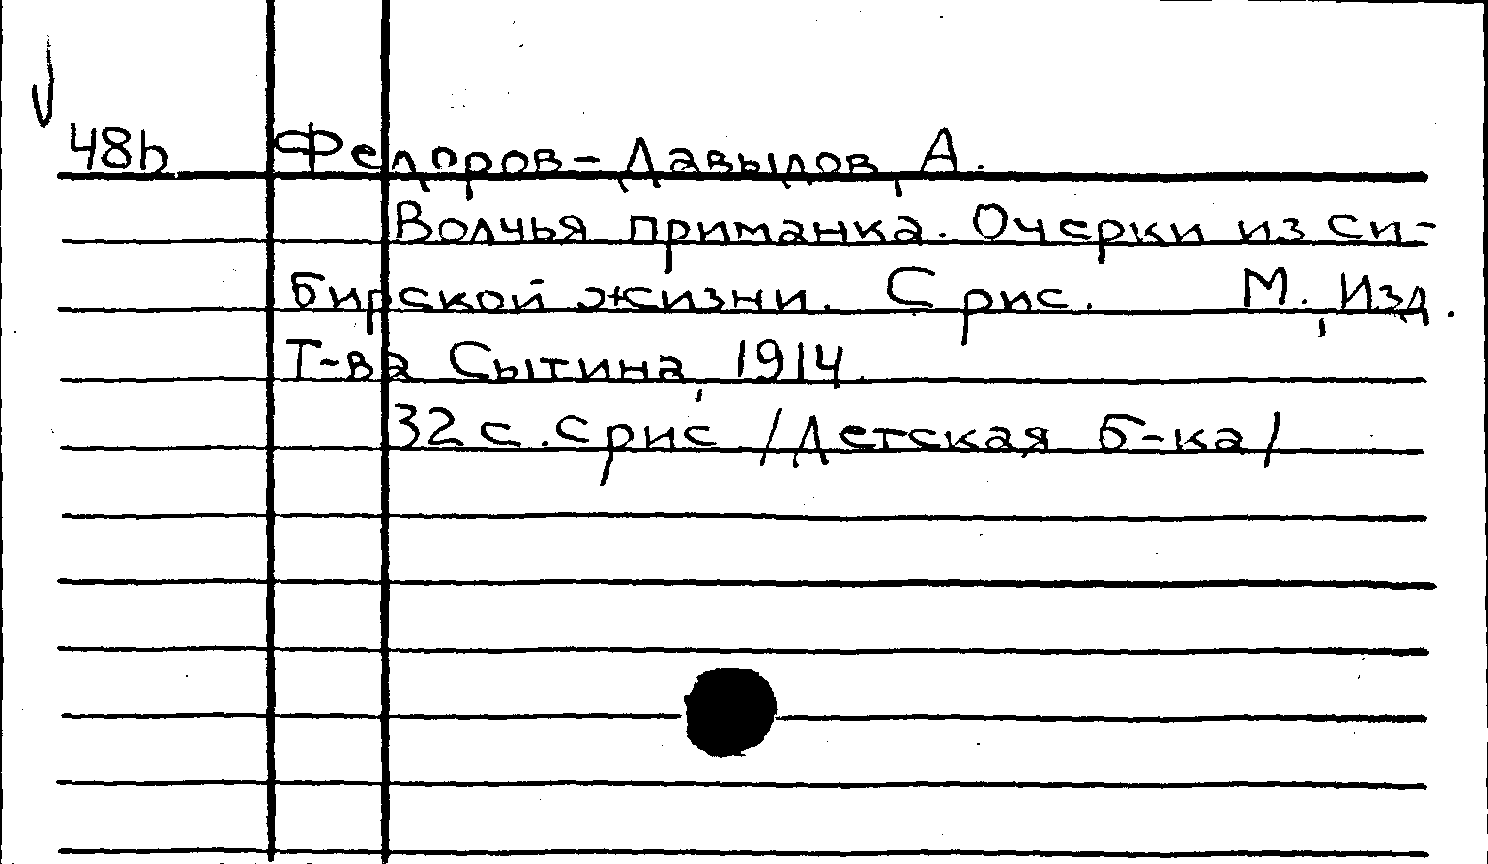 48b Федоров-Давыдов, А.
Волчья приманка. Очерки из си-
бирской жизни. С рис. М., Изд.
Т-ва Сытина, 1914.
32 с. с рис. /Детская б-ка/